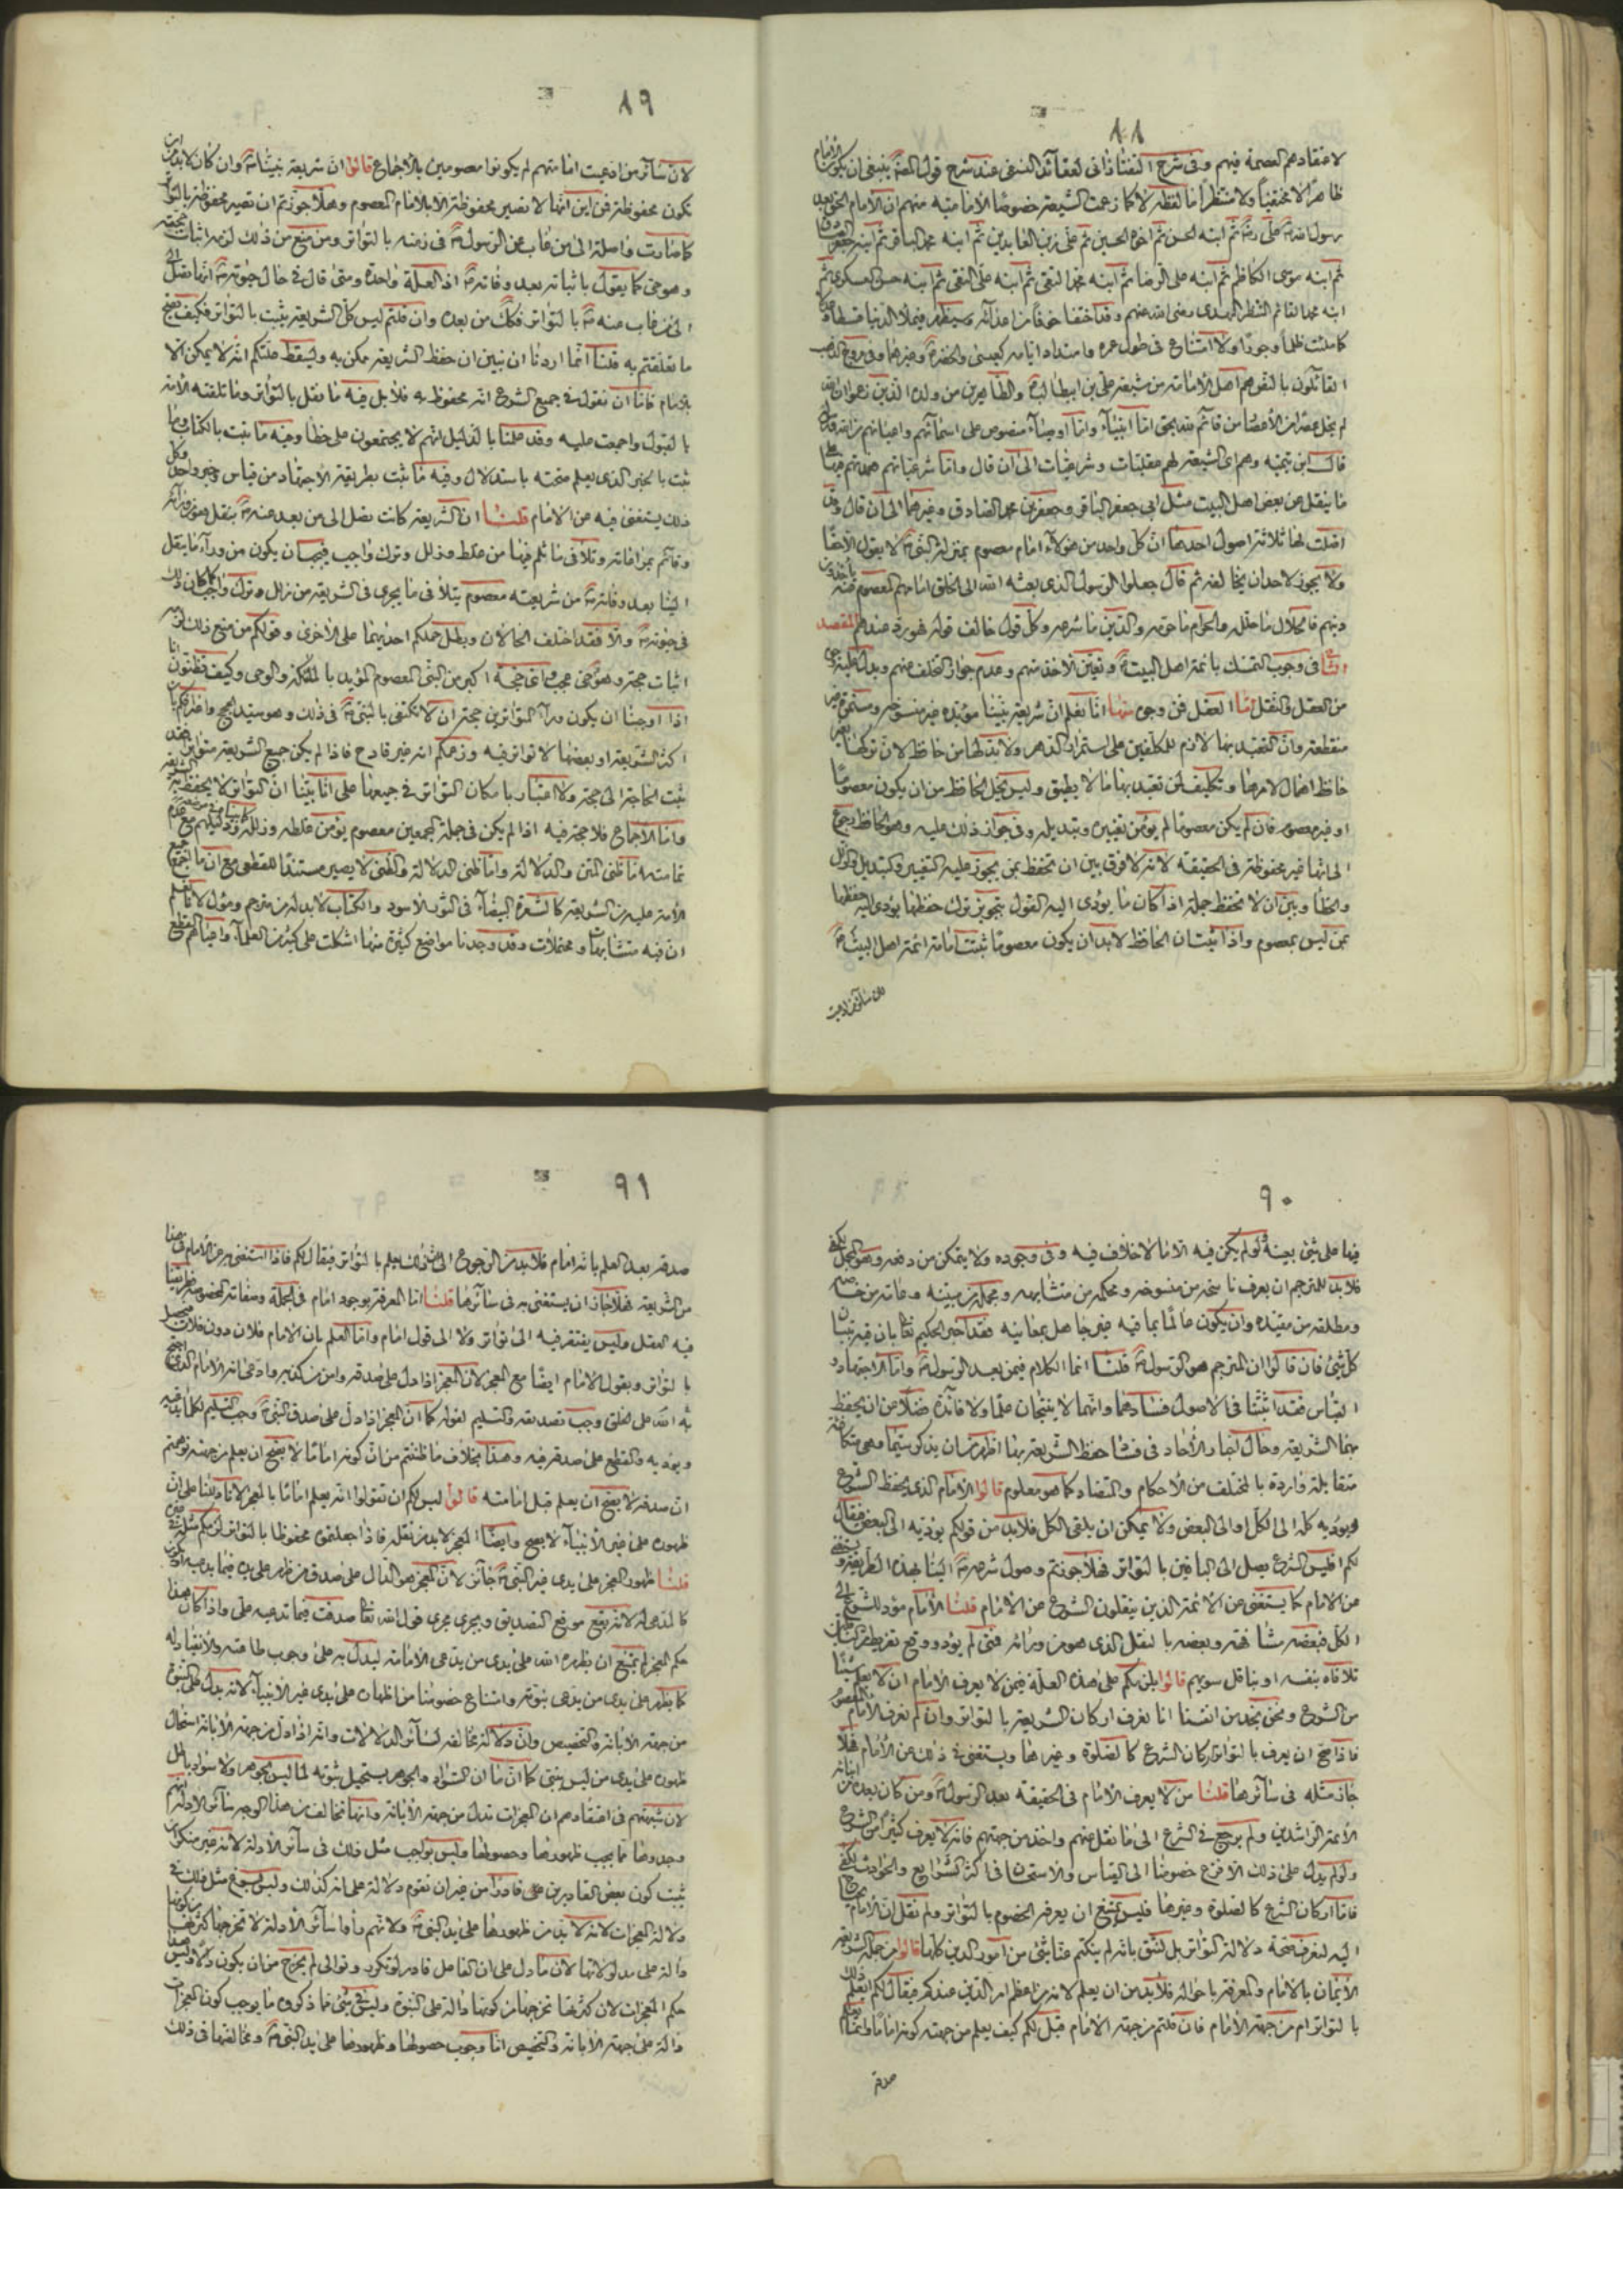 ٨٨
لاعتقادهم العصمة فيهم وفى شرح التفتازانى لعقائد النسفى عند شرح قول المصنف ينبغى ان يكون الامام
ظاهراً لا مختفياً ولا منتظراً ما لفظه لا كما زعمت الشيعة خصوصًا الامامية منهم ان الامام الحق بعد
رسول الله ص على رض ثم ابنه الحسن ثم اخوه الحسين ثم على زين العابدين ثم ابنه محمد الباقر ثم ابنه جعفر الصادق
ثم ابنه موسى الكاظم ثم ابنه على الرضا ثم ابنه محمد التقى ثم ابنه على النقى ثم ابنه حسن العسكرى ثم
ابنه محمد القائم المنتظر المهدى رضى الله عنهم وقد اختفا خوفًا من اعدائه وسيظهر فيملأ الدنيا قسطا وعدلا
كما ملئت ظلماً وجورًا ولا امتناع فى طول عمره وامتداد ايامه كعيسى والخضر وغيرهما وفى مروج الذهب
القائلون بالنص هم اهل الامامة من شيعة على بن ابيطالب والطاهرين من ولده الذين زعموا ان الله
لم يخل عصرًا من الاعصار من قائم لله بحق اما انبيآء واما اوصيآء منصوص على اسمائهم واعيانهم من الله
قال ابن تيمية وهم اى الشيعة لهم عقليات وشرعيات الى ان قال واما شرعياتهم عمدتهم فيها على
ما ينقل عن بعض اهل البيت مثل ابى جعفر الباقر وجعفر بن محمد الصادق وغيرهما الى ان قال وقد
اصلت لها ثلاثة اصول احدها ان كل واحد من هؤلآء امام معصوم بمنزلة النبى ص لا يقول الا حقا
ولا يجوز لاحد ان يخالفه ثم قال جعلوا الرسول الذى بعثه الله الى الخلق امامهم المعصوم عنه
دينهم فالحلال ما حلله والحرام ما حرمه والدين ما شرعه وكل قول خالف قوله فهو رد عندهم المقصد
فى وجوب التمسك بائمة اهل البيت وتعيّن الاخذ منهم وعدم جواز التخلف عنهم ويدل عليه
من العقل والنقل اما العقل فمن وجوه منها انا نعلم ان شريعة نبينا مؤبدة غير منسوخة ومستمرة غير
منقطعة وان التعبد بها لازم للمكلفين على استمرار الدهر ولا بد لها من حافظ لان تركها بغير
حافظ اهمال لامرها وتكليف لمن تعبد بها ما لا يطيق وليس يخل الحافظ من ان يكون معصومًا
او غير معصوم فان لم يكن معصومًا لم يؤمن تغييره وتبديله وفى جواز ذلك عليه وهو الحافظ رجوع
الى انها غير محفوظة فى الحقيقة لانه لا فرق بين ان تحفظ بمن يجوز عليه التغيير والتبديل والزلل
والخطأ وبين ان لا تحفظ جملة اذا كان ما يؤدى اليه القول بتجويز ترك حفظها يؤدى اليه حفظها
بمن ليس بمعصوم واذا ثبت ان الحافظ لا بد ان يكون معصومًا ثبتت امامة ائمة اهل البيت
لان سائر من ادعيت
٨٩
لان سائر من ادعيت امامتهم لم يكونوا معصومين بالاجماع قالوا ان شريعة نبينا ص وان كان لا بد من ان
تكون محفوظة فمن اين انها لا تصير محفوظة الا بالامام المعصوم وهلا جوزتم ان تصير محفوظة بالتواتر
كما صارت واصلة الى من غاب عن الرسول ص فى زمنه بالتواتر ومن منع من ذلك لزمه اثبات حجته
وهو حى كما يقول باثباته بعد وفاته ص اذ العلة واحدة ومتى قال فى حال حيوته ص انها تصل
الى من غاب عنه ص بالتواتر فكك من بعده وان قلتم ليس كل الشريعة يثبت بالتواتر فكيف يصح
ما تعلقتم به قلنا انما اردنا ان نبين ان حفظ الشريعة ممكن به وليسقط علتكم انه لا يمكن الا
بالامام فاما ان نقول فى جميع الشرع انه محفوظ به فلا بل فيه ما نقل بالتواتر وما تلقته الامة
بالقبول واجمعت عليه وقد علمنا بالدليل انهم لا يجتمعون على خطأ وفيه ما ثبت بالكتاب وما
ثبت بالخبر الذى يعلم صحته باستدلال وفيه ما ثبت بطريقة الاجتهاد من قياس وخبر واحد وكل
ذلك يستغنى فيه عن الامام قلنا ان الشريعة كانت تصل الى من بعد عنه ص بنقل هو من ورائه
وقائم بمراعاته وتلافى ما ثلم فيها من غلط وزلل وترك واجب فيجب ان يكون من ورآء ما ينقل
الينا بعد وفاته ص من شريعته معصوم يتلافى ما يجرى فى الشريعة من زلل وترك واجب كما كان ذلك
فى حيوته ص والا فقد اختلف الحالان وبطل حملكم احديهما على الاخرى وقولكم من منع ذلك لزمه
اثبات حجة وهو حى عجب واى حجة اكبر من النبى المعصوم المؤيد بالملائكة والوحى وكيف تظنون انا
اذا اوجبنا ان يكون ورآء المتواترين حجة ان لا نكتفى بالنبى ص فى ذلك وهو سيد الحجج
اكثر الشريعة او بعضها لا تواتر فيه وزعمكم انه غير قادح فاذا لم يكن جميع الشريعة متواترًا فقد
ثبت الحاجة الى حجة ولا اعتبار بامكان التواتر فى جميعها على انا بينا ان التواتر لا يحفظ به
واما الاجماع فلا حجة فيه اذا لم يكن فى جملة المجمعين معصوم يؤمن غلطه وزلله
تماميته اما ظنى المتن والدلالة واما ظنى الدلالة والظنى لا يصير مستندًا للقطعى مع ان ما اجتمع
الامة عليه من الشريعة كالشعرة البيضآء فى الثور الاسود والكتاب لا بد له من مترجم
ان فيه متشابهات ومحتملات وقد وجدنا مواضع كثيرة منها اشكلت على كثير من العلمآء واعياهم القطع
٩٠
فيها على شئ بعينه ولو لم يكن فيه الا ما لا خلاف فيه وفى وجوده ولا يتمكن من دفعه وهو المجمل
فلا بد للمترجم ان يعرف ناسخه من منسوخه ومحكمه من متشابهه ومجمله من مبينه وعامه من خاصه
ومطلقه من مقيده وان يكون عالمًا بما فيه غير جاهل بمعانيه فقد اخبر الحكيم تعالى بان فيه تبيان
كل شئ فان قالوا ان المترجم هو الرسول ص قلنا انما الكلام فيمن بعد الرسول ص واما الاجتهاد و
القياس فقد اثبتنا فى الاصول فسادهما وانهما لا ينتجان علمًا ولا فائدة فضلا عن ان يحفظ
بهما الشريعة وحال اخبار الآحاد فى فساد حفظ الشريعة بها اظهر من ان يذكر سيما وهى متكافئة
متقابلة واردة بالمختلف من الاحكام والتضاد كما هو معلوم قالوا الامام الذى يحفظ الشرع
ويؤديه كله الى الكل او الى البعض ولا يمكن ان يلقى الكل فلا بد من قولكم يؤديه الى البعض فيقال
لكم افليس الشرع يصل الى الباقين بالتواتر فهلا جوزتم وصول شرعه ص الينا بهذه الطريقة ويستغنى
عن الامام كما يستغنى عن الائمة الذين ينقلون الشرع عن الامام قلنا الامام مؤد للشرع الى
الكل فبعضه مشافهة وبعضه بالنقل الذى هو من ورائه فمتى لم يؤد ووقع تفريط من الناقلين
تلافاه بنفسه او بناقل سويهم قالوا يلزمكم على هذه العلة فيمن لا يعرف الامام ان لا يعلم شيئًا
من الشرع ونحن نجد من انفسنا انا نعرف اركان الشريعة بالتواتر وان لم نعرف الامام المعصوم
فاذا صح ان يعرف بالتواتر اركان الشرع كالصلوة وغيرها ويستغنى فى ذلك عن الامام فهلا
جاز مثله فى سائرها قلنا من لا يعرف الامام فى الحقيقة بعد الرسول ص ومن كان بعده من
الائمة الراشدين ولم يرجع فى الشرع الى ما نقل عنهم واخذ من جهتهم فانه لا يعرف كثيرًا من الشرع
ولو لم يدل على ذلك الا فزع خصومنا الى القياس والاستحسان فى اكثر الشرايع والحوادث لكفى
فاما اركان الشرع كالصلوة وغيرها فليس يمتنع ان يعرفه الخصوم بالتواتر ولم نقل ان الامام يحتاج
اليه لنعرف صحة دلالة التواتر بل لنثق بانه لم ينكتم عنا شئ من امور الدين كلها قالوا من جملة الشريعة
الايمان بالامام والمعرفة باحواله فلا بد من ان يعلم لانه من اعظم امر الدين عندكم فيقال لكم ايعلم ذلك
بالتواتر ام من جهة الامام فان قلتم من جهة الامام قيل لكم كيف يعلم من جهته كونه امامًا وانما يعلم
صدقه
٩١
صدقه بعد العلم بانه امام فلا بد من الرجوع الى انه يعلم بالتواتر فيقال لكم فاذا استغنى عن الامام فى هذا
من الشريعة فهلا جاز ان يستغنى به فى سائرها قلنا اما المعرفة بوجود امام فى الجملة وصفاته المخصوصة
فيه العقل وليس يفتقر فيه الى تواتر ولا الى قول امام واما العلم بان الامام فلان دون فلان فيحصل
بالتواتر وبقول الامام ايضًا مع المعجز لان المعجز اذا دل على صدقه وامن من كذبه وادعى انه الامام الذى احتج
به الله على الخلق وجب تصديقه والتسليم لقوله كما ان المعجز اذا دل على صدق النبى ص وجب التسليم لكلما
ويؤديه والقطع على صدقه فيه وهذا بخلاف ما ظننتم من ان كونه امامًا لا يصح ان يعلم من جهته
ان صدقه لا يصح ان يعلم قبل امامته قالوا ليس لكم ان تقولوا انه يعلم امامًا بالمعجز لانا دللنا على ان
ظهوره على غير الانبيآء لا يصح وايضًا المعجز لا بد من نقله فاذا جعلتموه محفوظا بالتواتر لزمكم مثله فى غيره
قلنا ظهور المعجز على يدى غير النبى ص جائز لان المعجز هو الدال على صدق من ظهر على يده فيما يدعيه
كالمدعى له لانه يقع موقع التصديق ويجرى مجرى قول الله تعالى صدقت فيما تدعيه على واذا كان هذا
حكم المعجز لم يمتنع ان يظهره الله على يدى من يدعى الامامة ليدل به على وجوب طاعته والانقياد له
كما يظهر على يدى من يدعى نبوته وامتناع خصومنا من اظهاره على يدى غير الانبيآء لانه يدل على النبوة
من جهة الابانة والتخصيص وان دلالته مخالفة لسائر الدلالات وانه اذا دل من جهة الابانة استحال
ظهوره على يدى من ليس بنبى كما ان ما ابان السواد والجوهر يستحيل ثبوته لما ليس بجوهر ولا سواد باطل
لان شبهتهم فى اعتقادهم ان المعجزات تدل من جهة الابانة وانها تخالف من هذا الوجه سائر الادلة انهم
وجدوها مما يجب ظهورها وحصولها وليس بواجب مثل ذلك فى سائر الادلة لانه غير منكر ان
يثبت كون بعض القادرين قادرًا من غير ان تقوم دلالة على انه كذلك وليس يسوغ مثل ذلك فى
دلالة المعجزات لانه لا بد من ظهورها على يد النبى ص ولانهم رأوا سائر الادلة لا تخرجها كثرتها من كونها
دالة على مدلولاتها لان ما دل على ان الفاعل قادر لو تكرر وتوالى لم يخرج من ان يكون دالا وليس هذا
حكم المعجزات لان كثرتها تخرجها من كونها دالة على النبوة وليس فى شئ مما ذكروه ما يوجب كون المعجزات
دالة على جهة الابانة والتخصيص اما وجوب حصولها وظهورها على يد النبى ص ومخالفتها فى ذلك